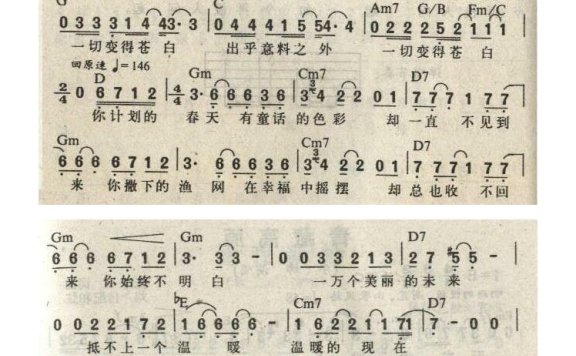 G C Am7 G/B Fm/C
0 3 3 3 4 3 4 3· 3 0 4 4 4 1 5 5 4· 4 0 2 2 2 5 2 1 1 1
一切变得苍白 出乎意料之外 一切变得苍白
回原速 ♩=146
D Gm Cm7 D7
2/4 0 6 7 1 2 4/4 3· 6 6 6 3 6 3 4 2 2 0 1 7 7 7 1 7 7
你计划的 春天 有童话的色彩 却一直 不见到
Gm Cm7 D7
6 6 6 6 7 1 2 3· 6 6 6 3 6 3 4 2 2 0 1 7 7 7 1 7 7
来 你撒下的渔 网在幸福中摇摆 却总也收 不回
Gm Gm D7
6 6 6 6 7 1 2 3· 3 3 – 0 0 3 3 2 1 2 2 7 #5 5 –
来 你始终不明白 一万个美丽的未来
♭E Cm7 D7
0 0 2 2 1 7 2 1 6 6 6 6 1 6 2 2 1 1 7 1 7 – 0 0
抵不上一个温暖 温暖的现在